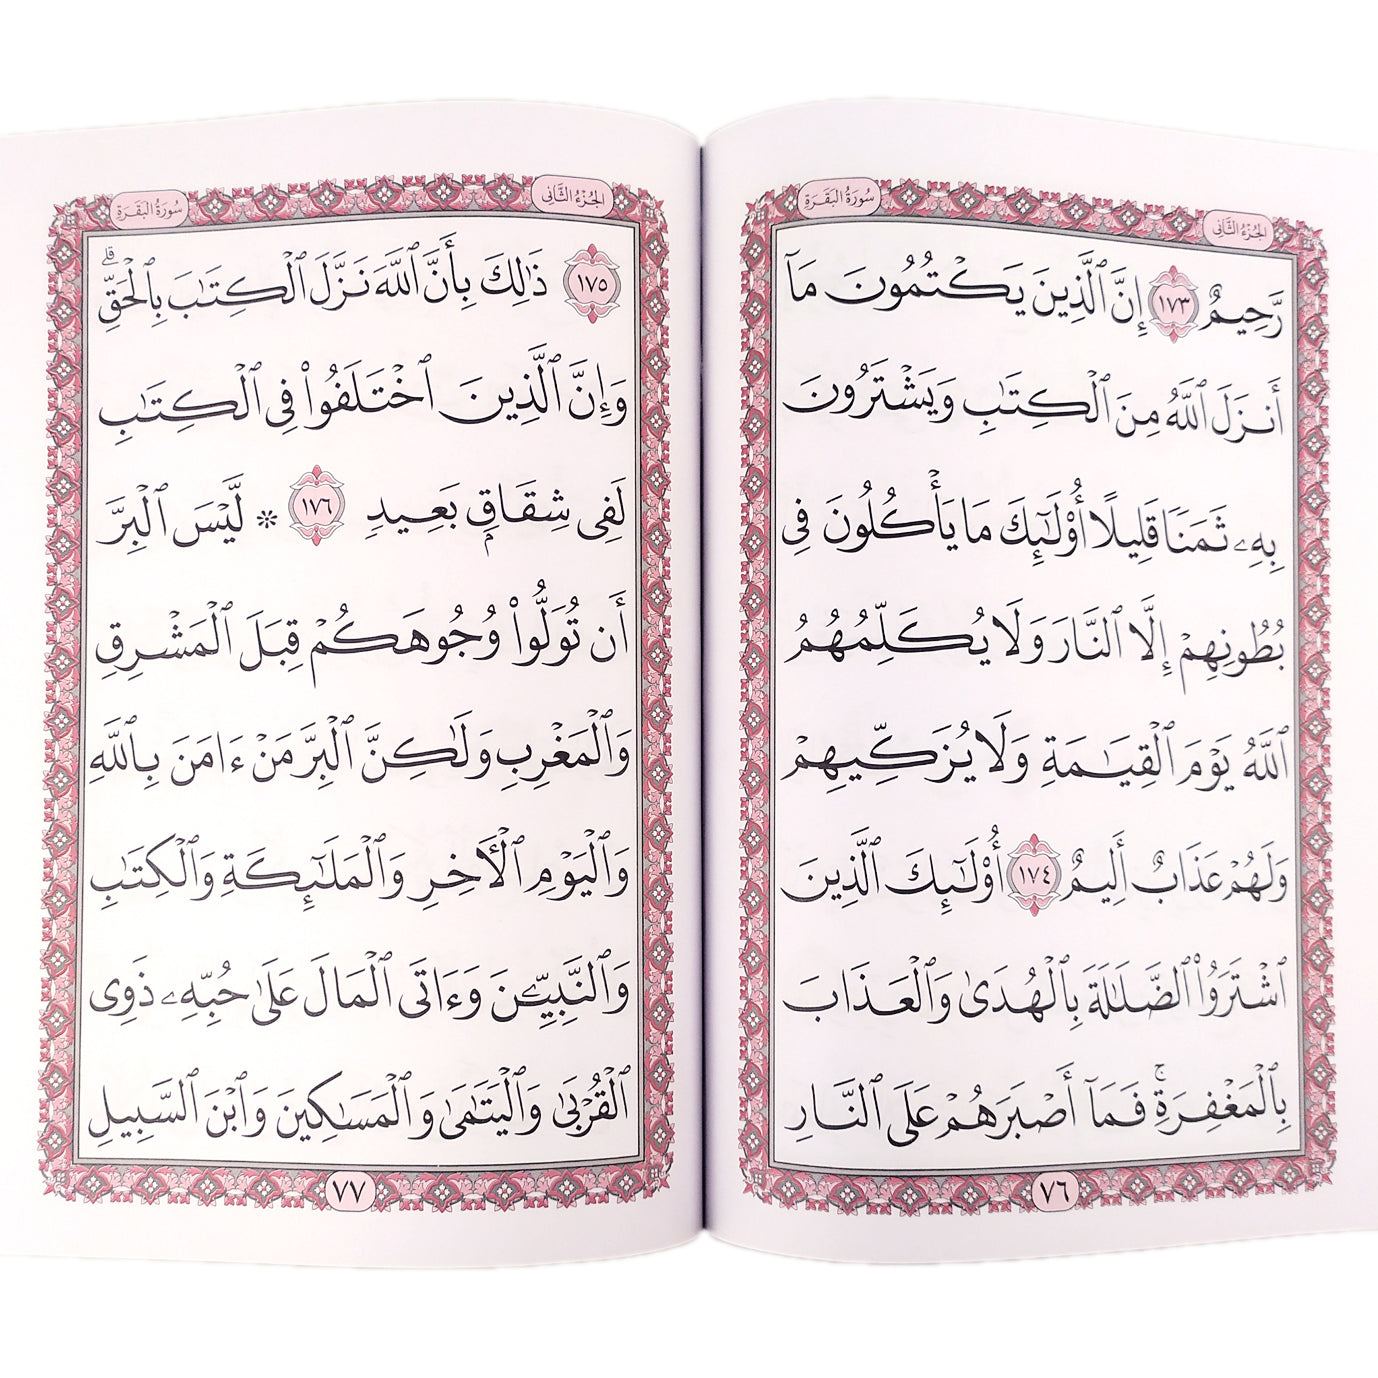 سُورَةُ البَقَرَةِ
الجُزْءُ الثَّانِي
رَّحِيمٌ ١٧٣ إِنَّ ٱلَّذِينَ يَكْتُمُونَ مَآ
أَنزَلَ ٱللَّهُ مِنَ ٱلْكِتَٰبِ وَيَشْتَرُونَ
بِهِۦ ثَمَنًا قَلِيلًا أُوْلَٰٓئِكَ مَا يَأْكُلُونَ فِى
بُطُونِهِمْ إِلَّا ٱلنَّارَ وَلَا يُكَلِّمُهُمُ
ٱللَّهُ يَوْمَ ٱلْقِيَٰمَةِ وَلَا يُزَكِّيهِمْ
وَلَهُمْ عَذَابٌ أَلِيمٌ ١٧٤ أُوْلَٰٓئِكَ ٱلَّذِينَ
ٱشْتَرَوُاْ ٱلضَّلَٰلَةَ بِٱلْهُدَىٰ وَٱلْعَذَابَ
بِٱلْمَغْفِرَةِۚ فَمَآ أَصْبَرَهُمْ عَلَى ٱلنَّارِ
٧٦
الجُزْءُ الثَّانِي
سُورَةُ البَقَرَةِ
١٧٥ ذَٰلِكَ بِأَنَّ ٱللَّهَ نَزَّلَ ٱلْكِتَٰبَ بِٱلْحَقِّۗ
وَإِنَّ ٱلَّذِينَ ٱخْتَلَفُواْ فِى ٱلْكِتَٰبِ
لَفِى شِقَاقٍۭ بَعِيدٍ ١٧٦ ۞ لَّيْسَ ٱلْبِرَّ
أَن تُوَلُّواْ وُجُوهَكُمْ قِبَلَ ٱلْمَشْرِقِ
وَٱلْمَغْرِبِ وَلَٰكِنَّ ٱلْبِرَّ مَنْ ءَامَنَ بِٱللَّهِ
وَٱلْيَوْمِ ٱلْأَخِرِ وَٱلْمَلَٰٓئِكَةِ وَٱلْكِتَٰبِ
وَٱلنَّبِيِّۦنَ وَءَاتَى ٱلْمَالَ عَلَىٰ حُبِّهِۦ ذَوِى
ٱلْقُرْبَىٰ وَٱلْيَتَٰمَىٰ وَٱلْمَسَٰكِينَ وَٱبْنَ ٱلسَّبِيلِ
٧٧